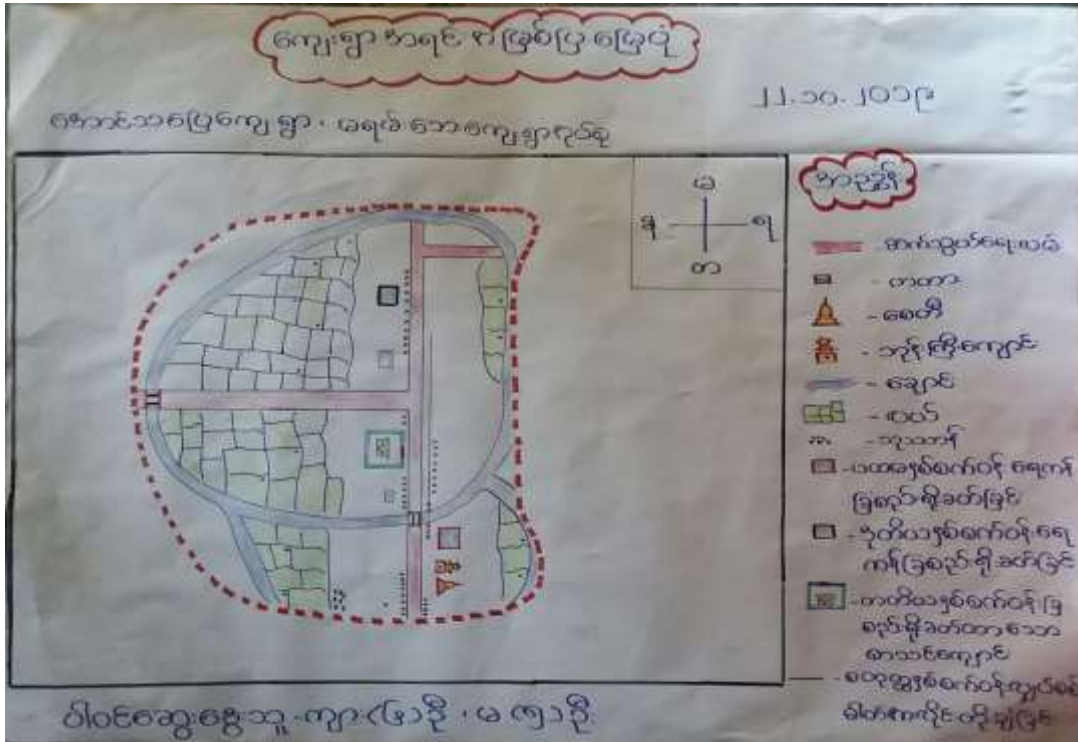 ကျေးရွာအရင်းအမြစ်ပြမြေပုံ
၂၂.၁၀.၂၀၁၉
အောင်သပြေကျေးရွာ၊ မရမ်းဘောကျေးရွာအုပ်စု
မ
န ရ
တ
အညွှန်း
ဆက်သွယ်ရေးလမ်း
- တံတား
- စေတီ
- ဘုန်းကြီးကျောင်း
- ချောင်း
- လယ်
- သုသာန်
- ပထမနှစ်စက်ဝန်း ရေကန်
ခြံစည်းရိုးခတ်ခြင်း
- ဒုတိယနှစ်စက်ဝန်း ရေ
ကန်ခြံစည်းရိုးခတ်ခြင်း
- တတိယနှစ်စက်ဝန်း ခြံ
စည်းရိုးခတ်ထားသော
စာသင်ကျောင်း
- စတုတ္ထနှစ်စက်ဝန်း လျှပ်စစ်
ဓါတ်အားလိုင်းတိုးချဲ့ခြင်း
ပါဝင်ဆွေးနွေးသူ - ကျား ဦး၊ မ ဦး